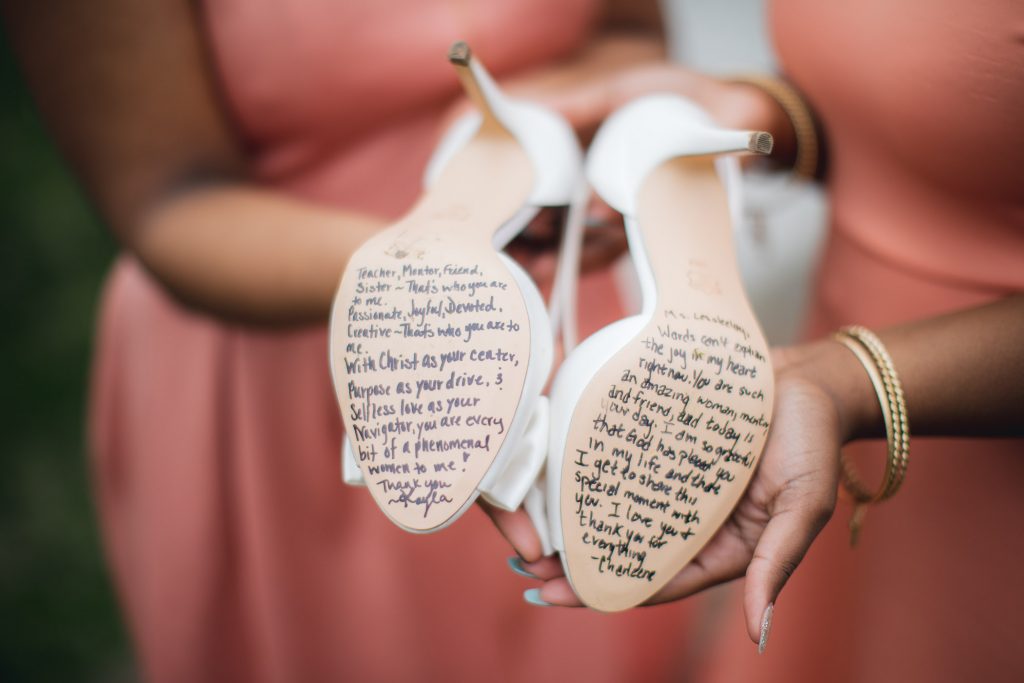 Teacher, Mentor, Friend,
Sister ~ That's who you are
to me.
Passionate, Joyful, Devoted,
Creative ~ That's who you are to
me.
With Christ as your center,
Purpose as your drive, &
Selfless love as your
Navigator, you are every
bit of a phenomenal
women to me!
Thank you
~Kayla
Ms.
Words can't explain
the joy in my heart
right now. You are such
an amazing woman, mentor
and friend, and today is
your day. I am so grateful
that God has placed you
in my life and that
I get to share this
special moment with
you. I love you &
thank you for
everything
-Charlene